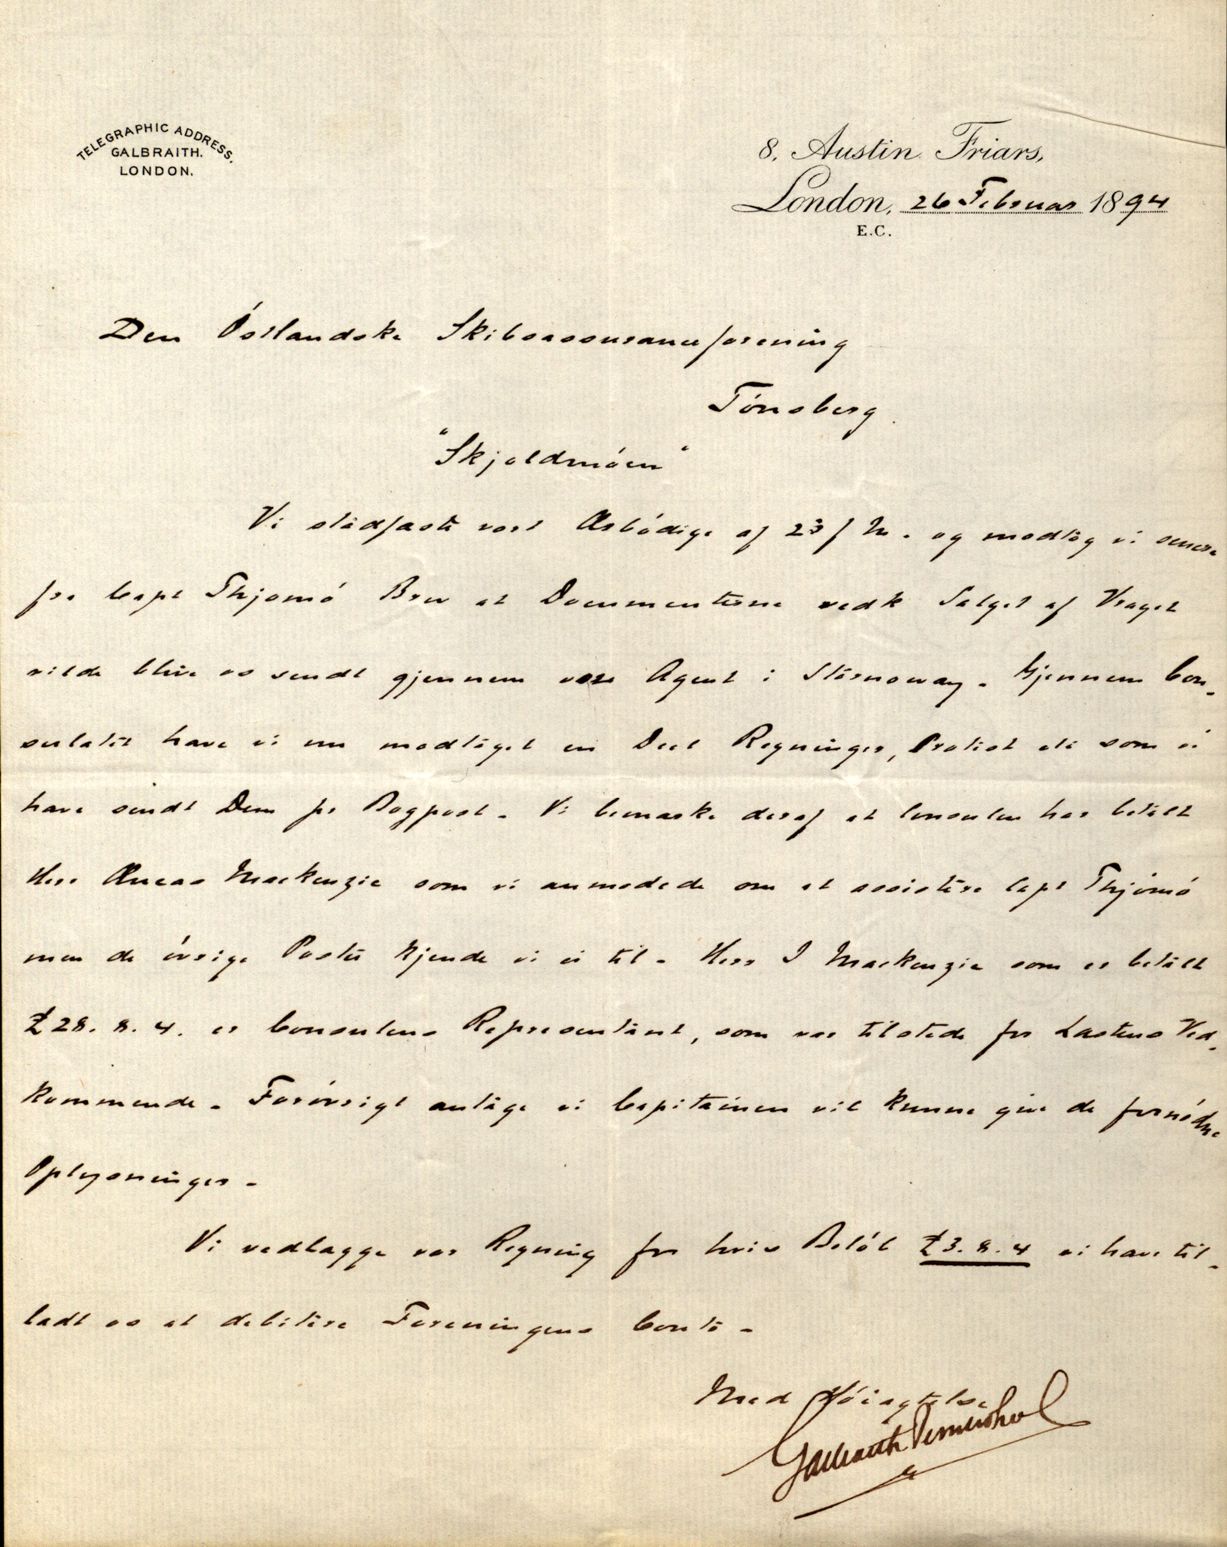 TELEGRAPHIC ADDRESS.
GALBRAITH.
LONDON.
8, Austin Friars,
London, 26 Februar 1894
E.C.
Den Óstlandske Skibsassuranceforening
Tónsberg.
"Skjoldmóen"
Vi stadfæste vort Ærbódige af 23 f M. og modtog vi senere
fra Capt Thjomó Brev at Documenterne vedk Salget af Vraget
vilde blive os sendt gjennem vor Agent i Stornoway. Gjennem Con-
sulatet have vi nu modtaget en Deel Regninger, Protest etc som vi
have sendt Dem pr Bogpost. Vi bemærke deraf at Consulen har betalt
Herr Æneas Mackenzie som vi anmodede om at assistere Capt Thjómó
men de óvrige Poster kjende vi ei til. Herr I Mackenzie som er betalt
£28.8.4. er Consulens Representant, som var tilstede for Lastens Ved-
kommende. Foróvrigt antage vi Capitainen vil kunne give de fornódne
Oplysninger.
Vi vedlægge vor Regning for hvis Belób £3.8.4 vi have til-
ladt os at debitere Foreningens Conto.
Med Hóiagtelse
Galbraith Pembroke